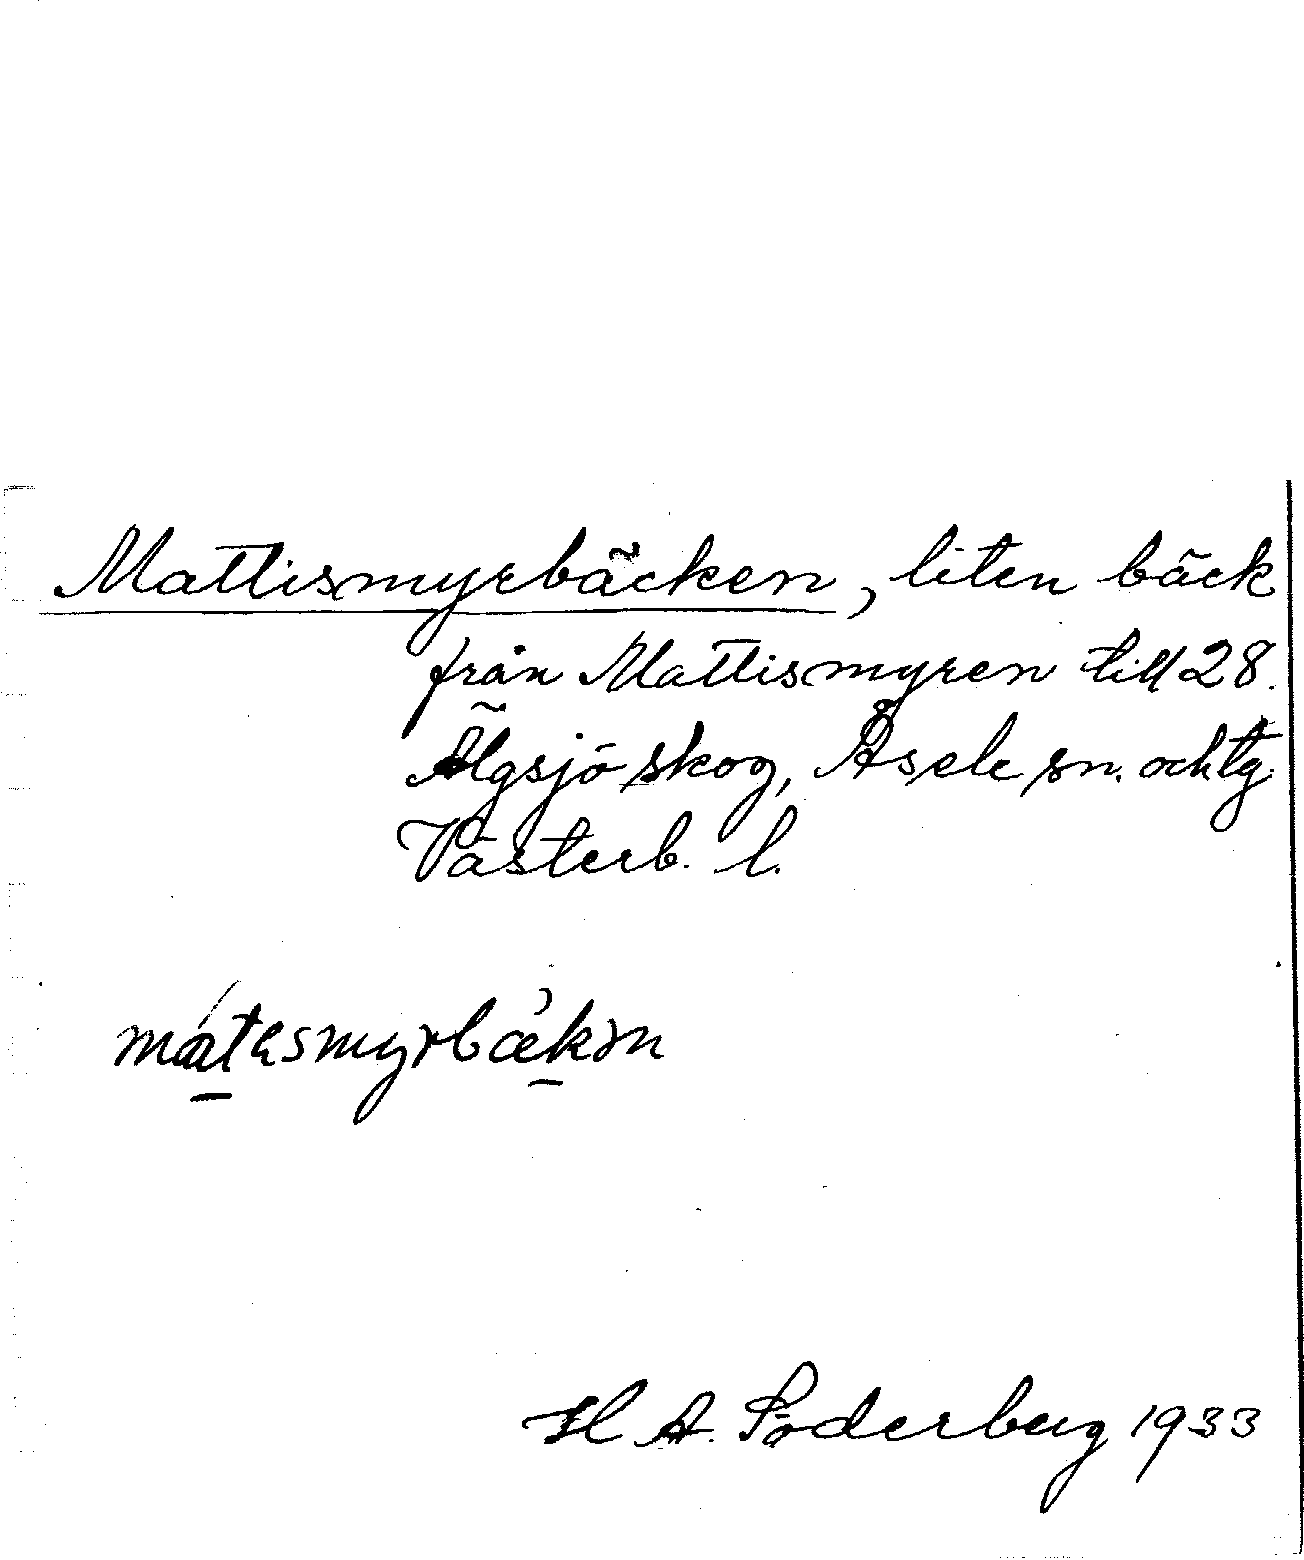 Mattismyrbäcken, liten bäck
från Mattismyren till 28.
Älgsjö skog, Åsele sn. och tg
Västerb. l.
H A. Söderberg 1933